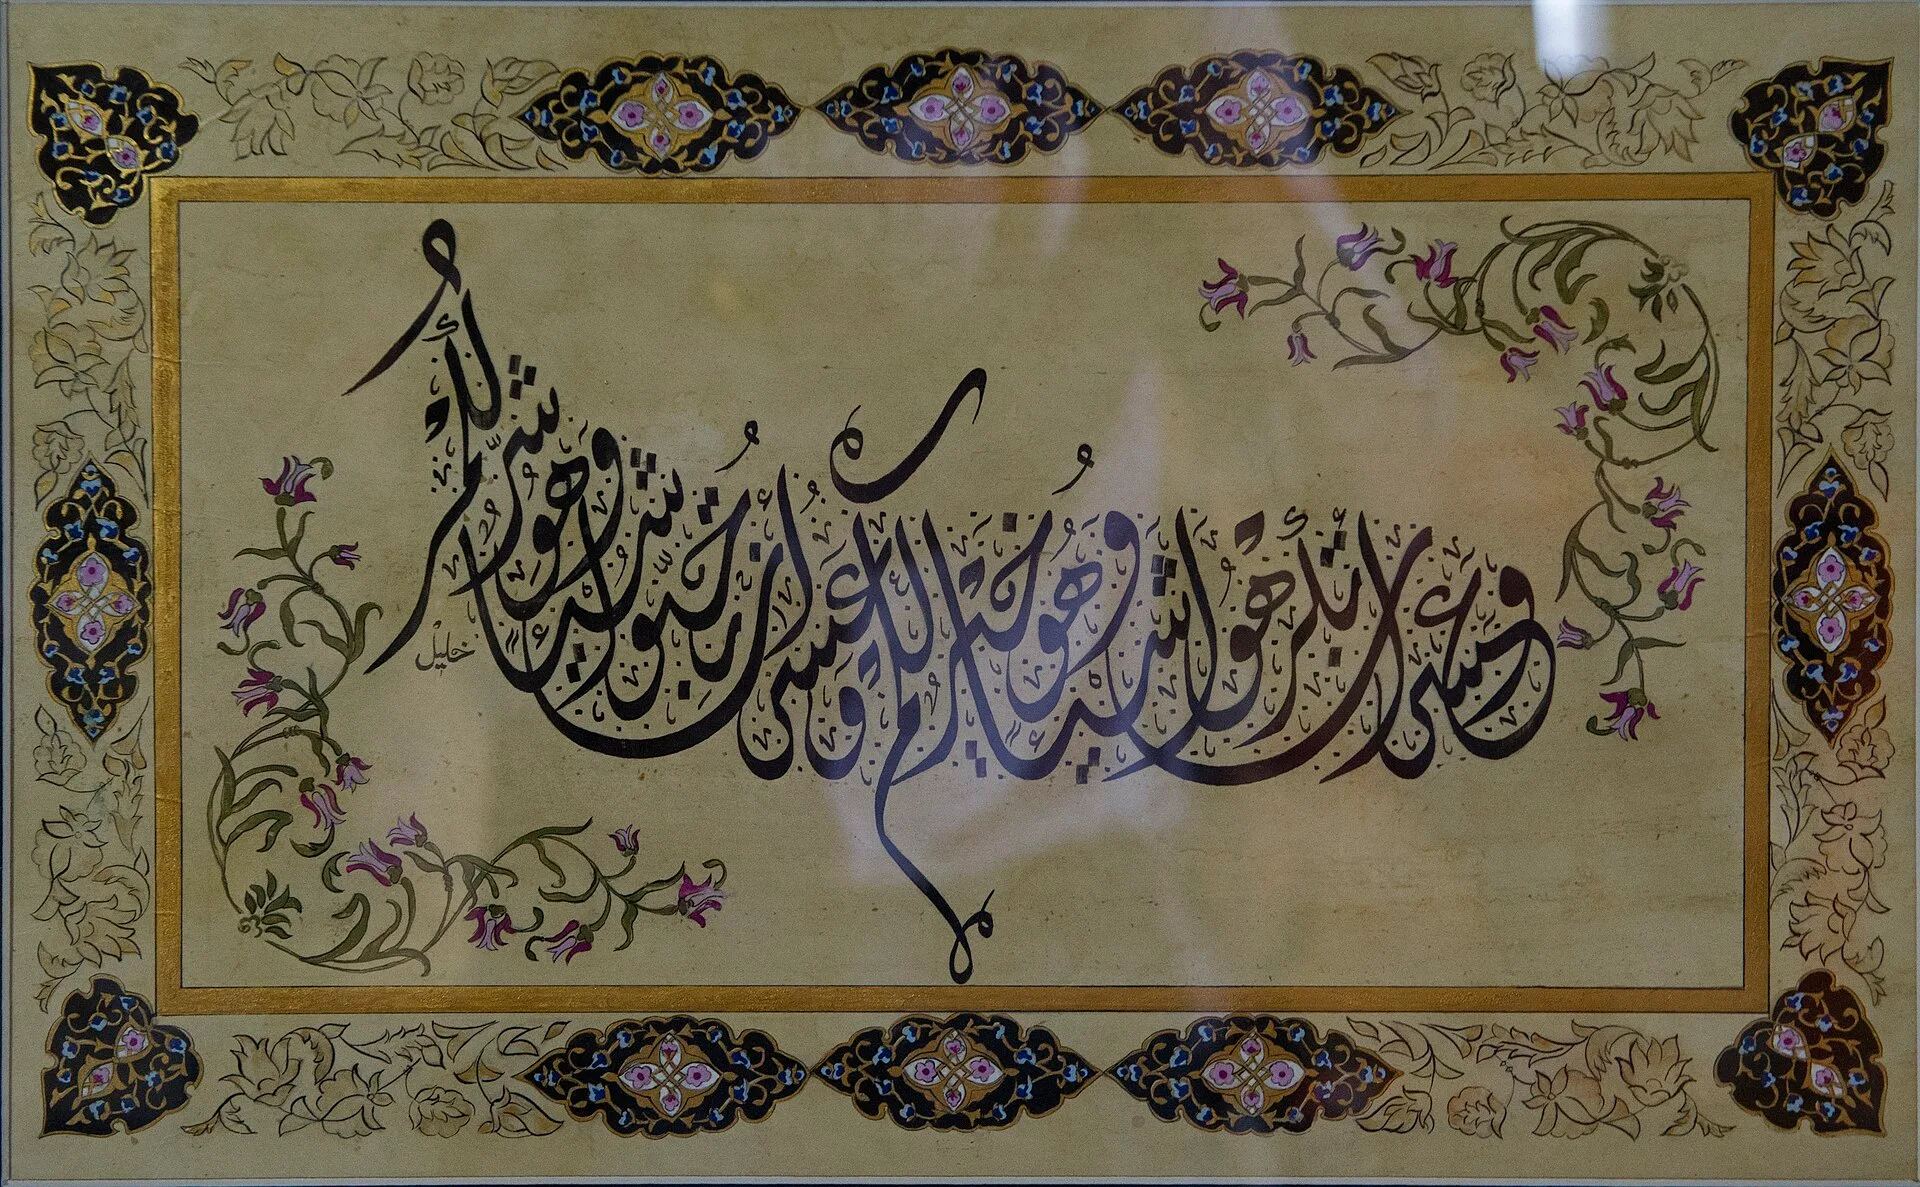 وَعَسَى أَنْ تَكْرَهُوا شَيْئًا وَهُوَ خَيْرٌ لَكُمْ وَعَسَى أَنْ تُحِبُّوا شَيْئًا وَهُوَ شَرٌّ لَكُمْ
خليل